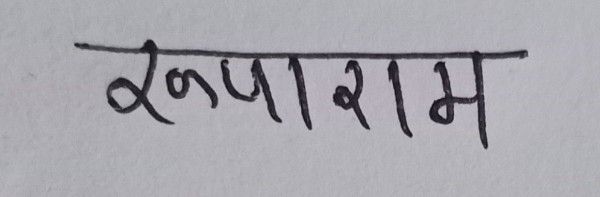 रूपाराम